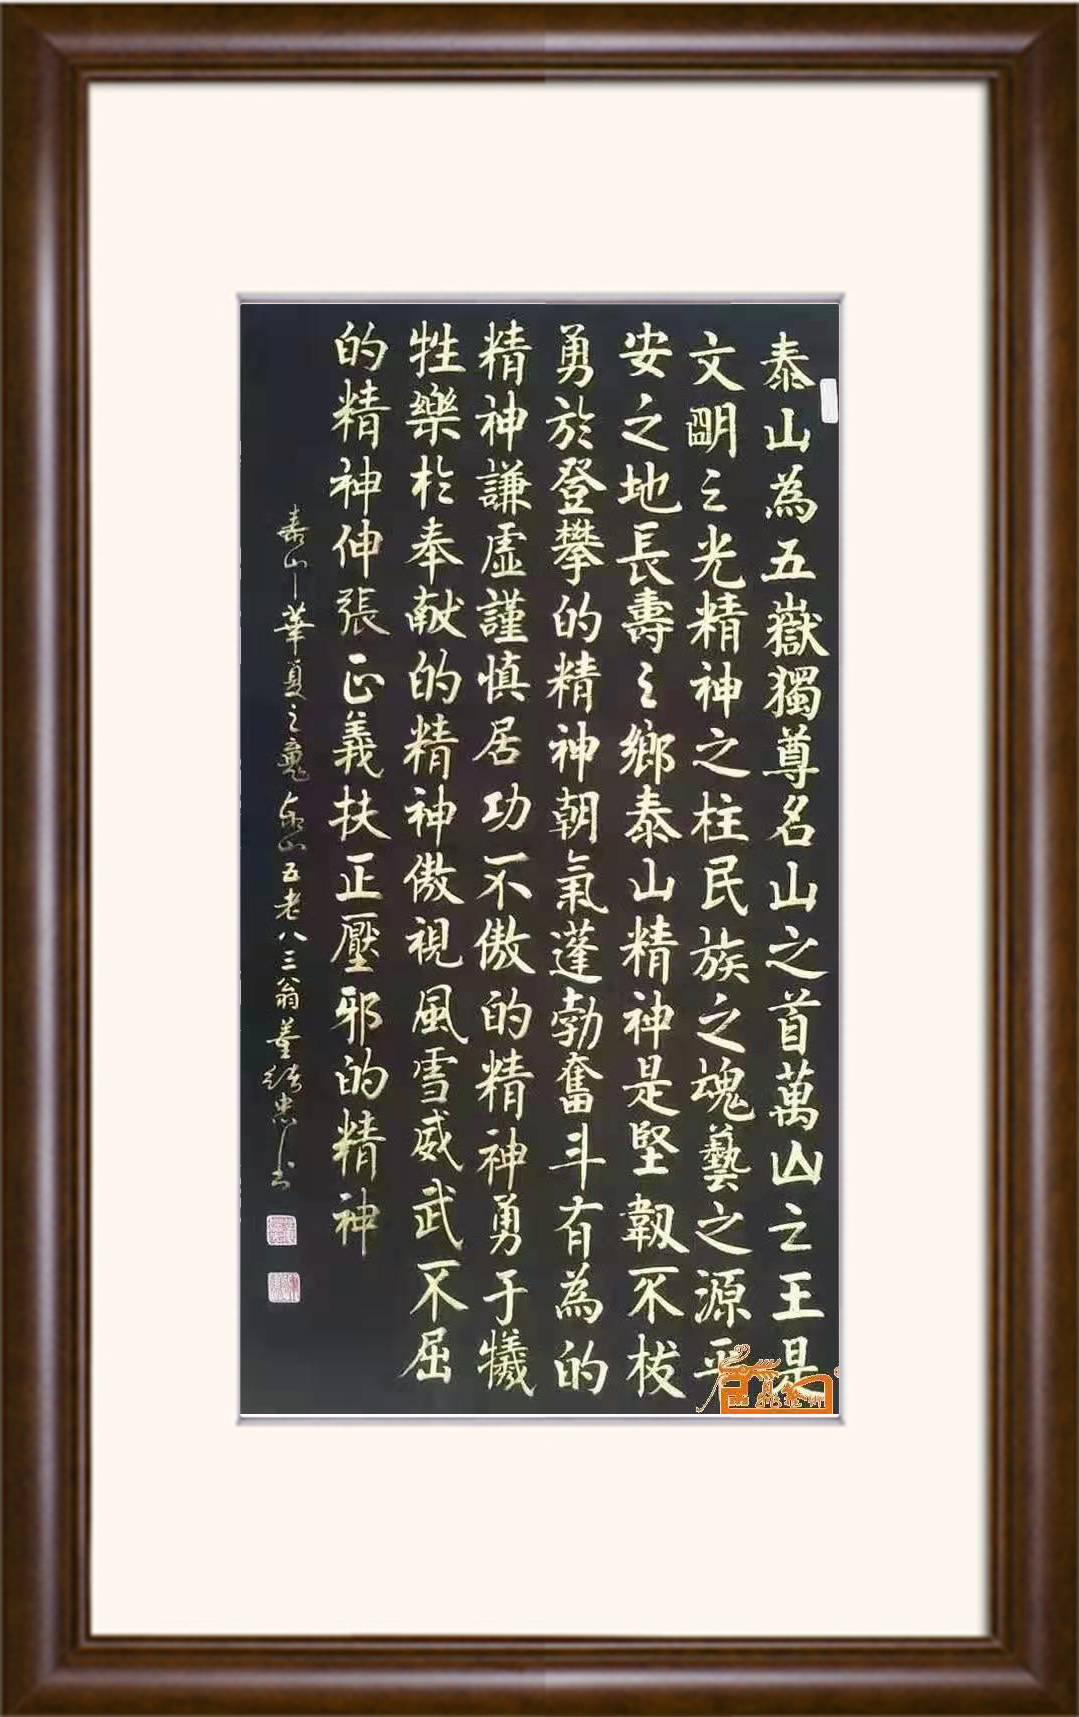 泰山為五嶽獨尊名山之首萬山之王是
文明之光精神之柱民族之魂藝之源平
安之地長壽之鄉泰山精神是堅韌不拔
勇於登攀的精神朝氣蓬勃奮斗有為的
精神謙虛謹慎居功不傲的精神勇于犧
牲樂於奉献的精神傲視風雪威武不屈
的精神伸張正義扶正壓邪的精神
泰山華夏之魂泰山五老八三翁董緒忠书